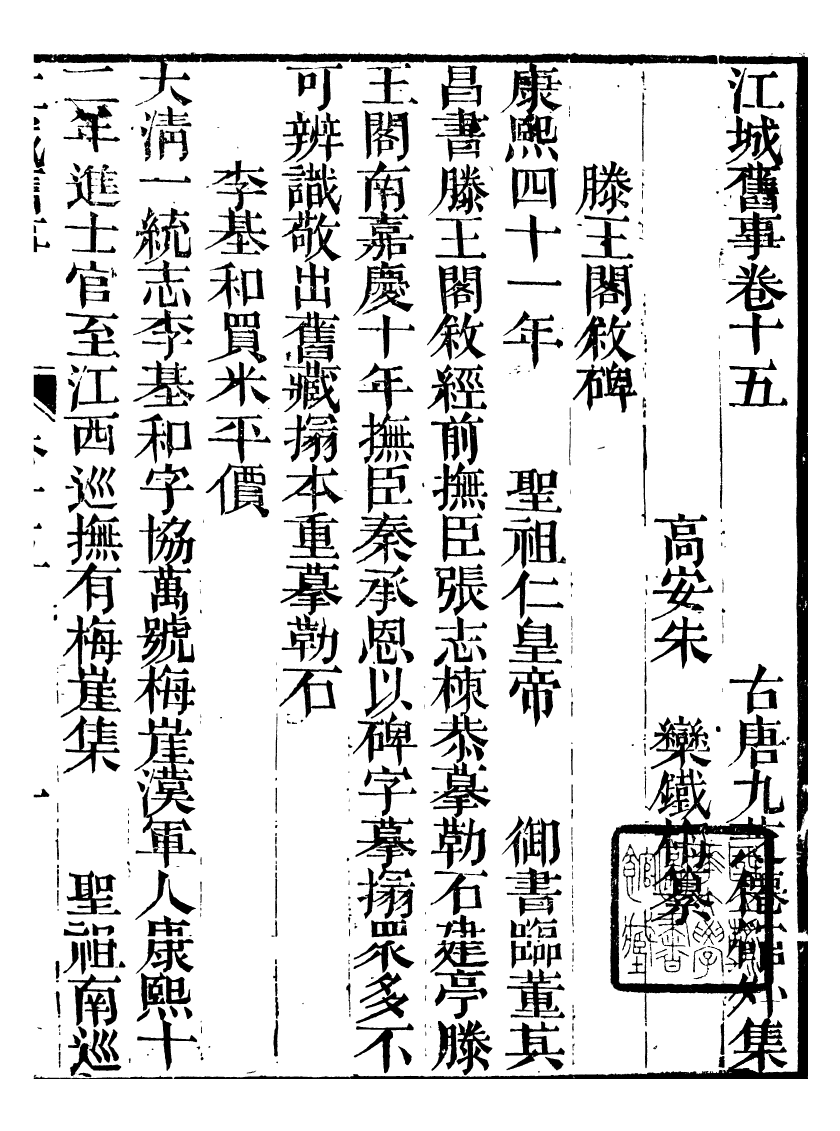 江城舊事卷十五　古唐九芝僊館外集
高安朱　欒鐵梅纂
滕王閣敘碑
康熙四十一年　聖祖仁皇帝　御書臨董其
昌書滕王閣敘經前撫臣張志棟恭摹勒石建亭滕
王閣南嘉慶十年撫臣秦承恩以碑字摹搨衆多不
可辨識敬出舊藏搨本重摹勒石
李基和買米平價
大淸一統志李基和字協萬號梅崖漢軍人康熙十
二年進士官至江西巡撫有梅崖集　聖祖南巡